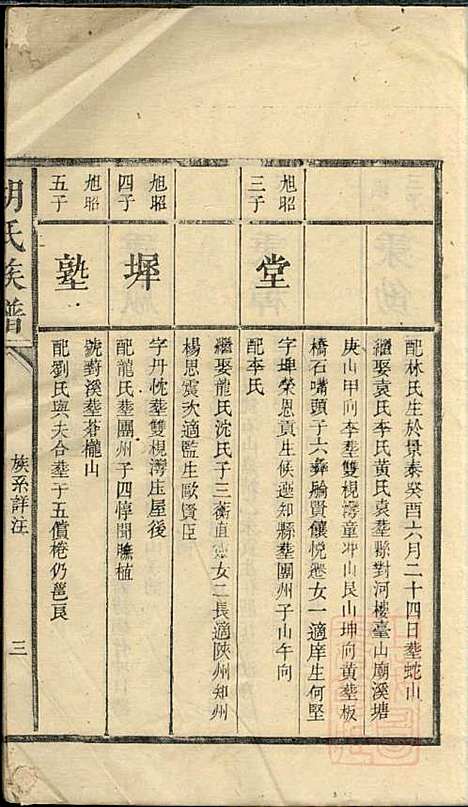 配林氏生於景泰癸酉六月二十四日塟蛇山
繼娶袁氏李氏黄氏袁塟縣對河樓臺山廟溪塘
庚山甲向李塟雙梘灣童冲山艮山坤向黄塟板
橋石嘴頭子六彝騎賢儀悦懸女一適庠生何堅
旭昭
三子
堂
字埤榮恩貢生候選知縣塟團州子山午向
配李氏
繼娶龍氏沈氏子三衡直女二長適陝州知州
楊思震次適監生歐賢臣
旭昭
四子
墀
字丹忱塟雙梘灣庄屋後
配龍氏塟團州子四惇聞膴植
旭昭
五子
塾
號對溪塟蒼櫳山
配劉氏與夫合塟子五償棬仍邕艮
胡氏族譜
族系詳注
三